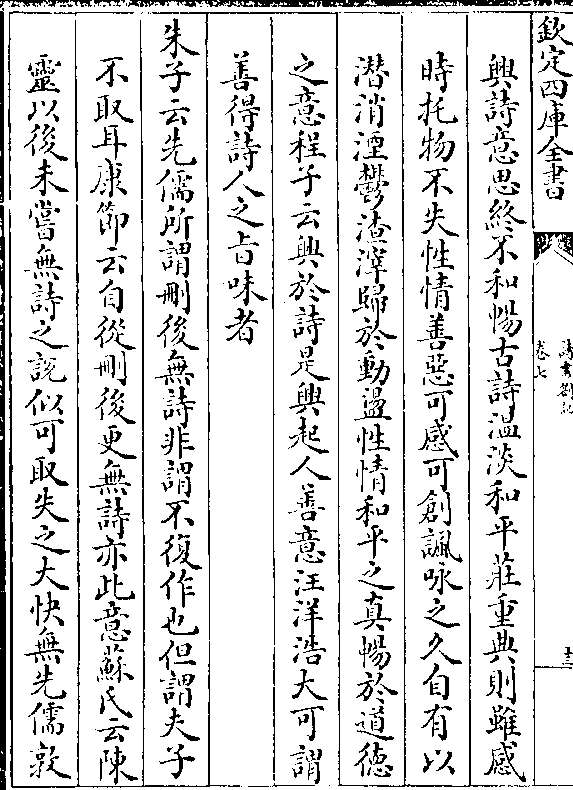 欽定四庫全書
詩書劄記
卷七
十三
興詩意思終不和暢古詩溫淡和平莊重典則雖感
時托物不失性情善惡可感可創諷咏之久自有以
潛消湮鬱渣滓歸於動盪性情和平之真暢於道徳
之意程子云興於詩是興起人善意汪洋浩大可謂
善得詩人之旨味者
朱子云先儒所謂刪後無詩非謂不復作也但謂夫子
不取耳康節云自從刪後更無詩亦此意蘇氏云陳
靈以後未嘗無詩之說似可取失之大快無先儒敦